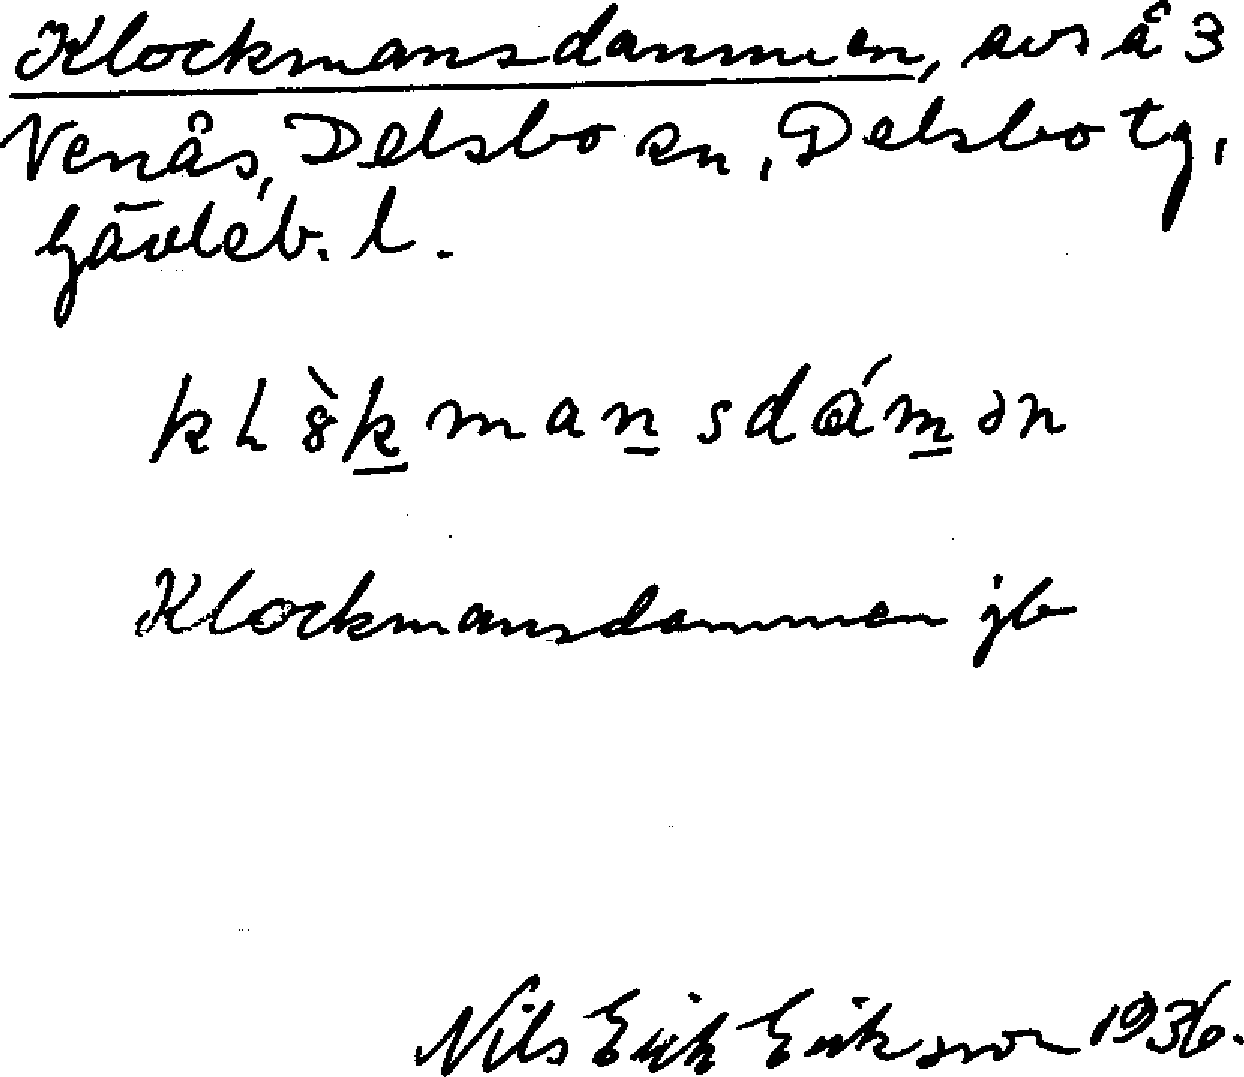 Klockmansdammen, avs å 3
Venås, Delsbo sn, Delsbo tg,
Gävleb. l.
Klockmansdammen jb
Nils Erik Eriksson 1936.